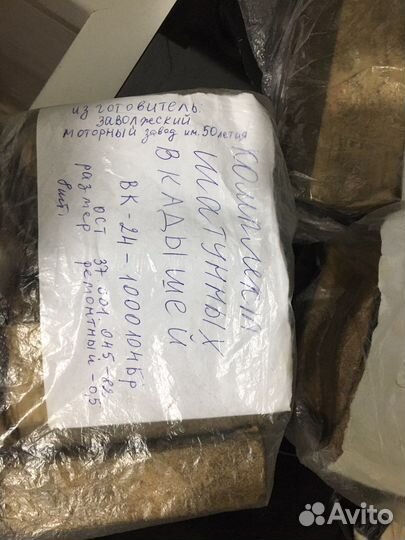 изготовитель:
заволжский
моторный завод им. 50 летия
комплект
шатунных
вкадышей
ВК-24-1000104бр
ост 37.001.045-82
размер ремонтный -0,5
8 шт.
Avito